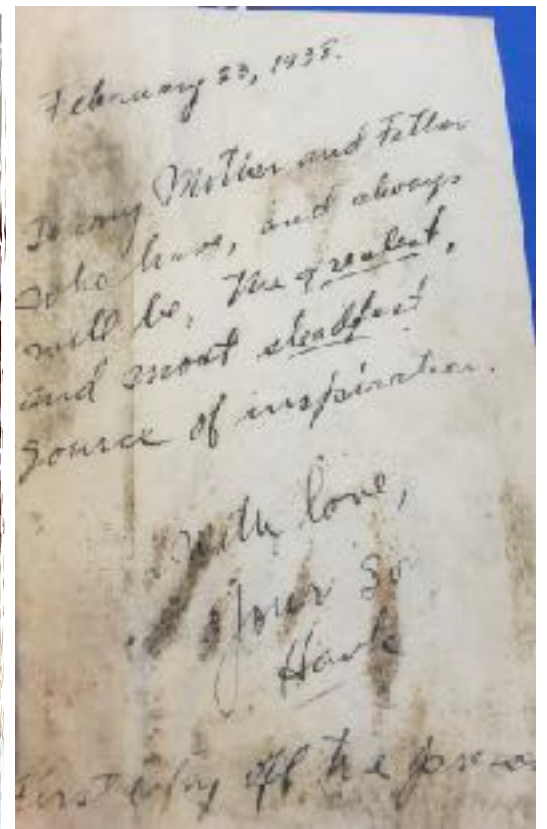 February 23, 1938.
To my Mother and Father
who have, and always
will be, the greatest,
and most steadfast
source of inspiration.
With love,
Your So
Hawk
First copy off the press